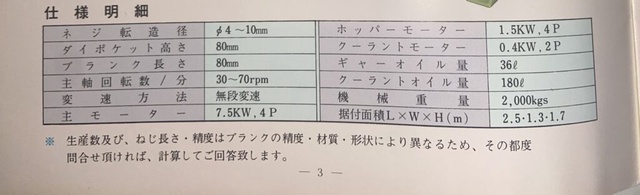 仕様明細
ネジ転造径 φ4～10mm
ダイポケット高さ 80mm
ブランク長さ 80mm
主軸回転数/分 30～70rpm
変速方法 無段変速
主モーター 7.5KW, 4P
ホッパーモーター 1.5KW, 4P
クーラントモーター 0.4KW, 2P
ギャーオイル量 36ℓ
クーラントオイル量 180ℓ
機械重量 2,000kgs
据付面積L×W×H(m) 2.5·1.3·1.7
※ 生産数及び、ねじ長さ・精度はブランクの精度・材質・形状により異なるため、その都度
問合せ頂ければ、計算してご回答致します。
— 3 —